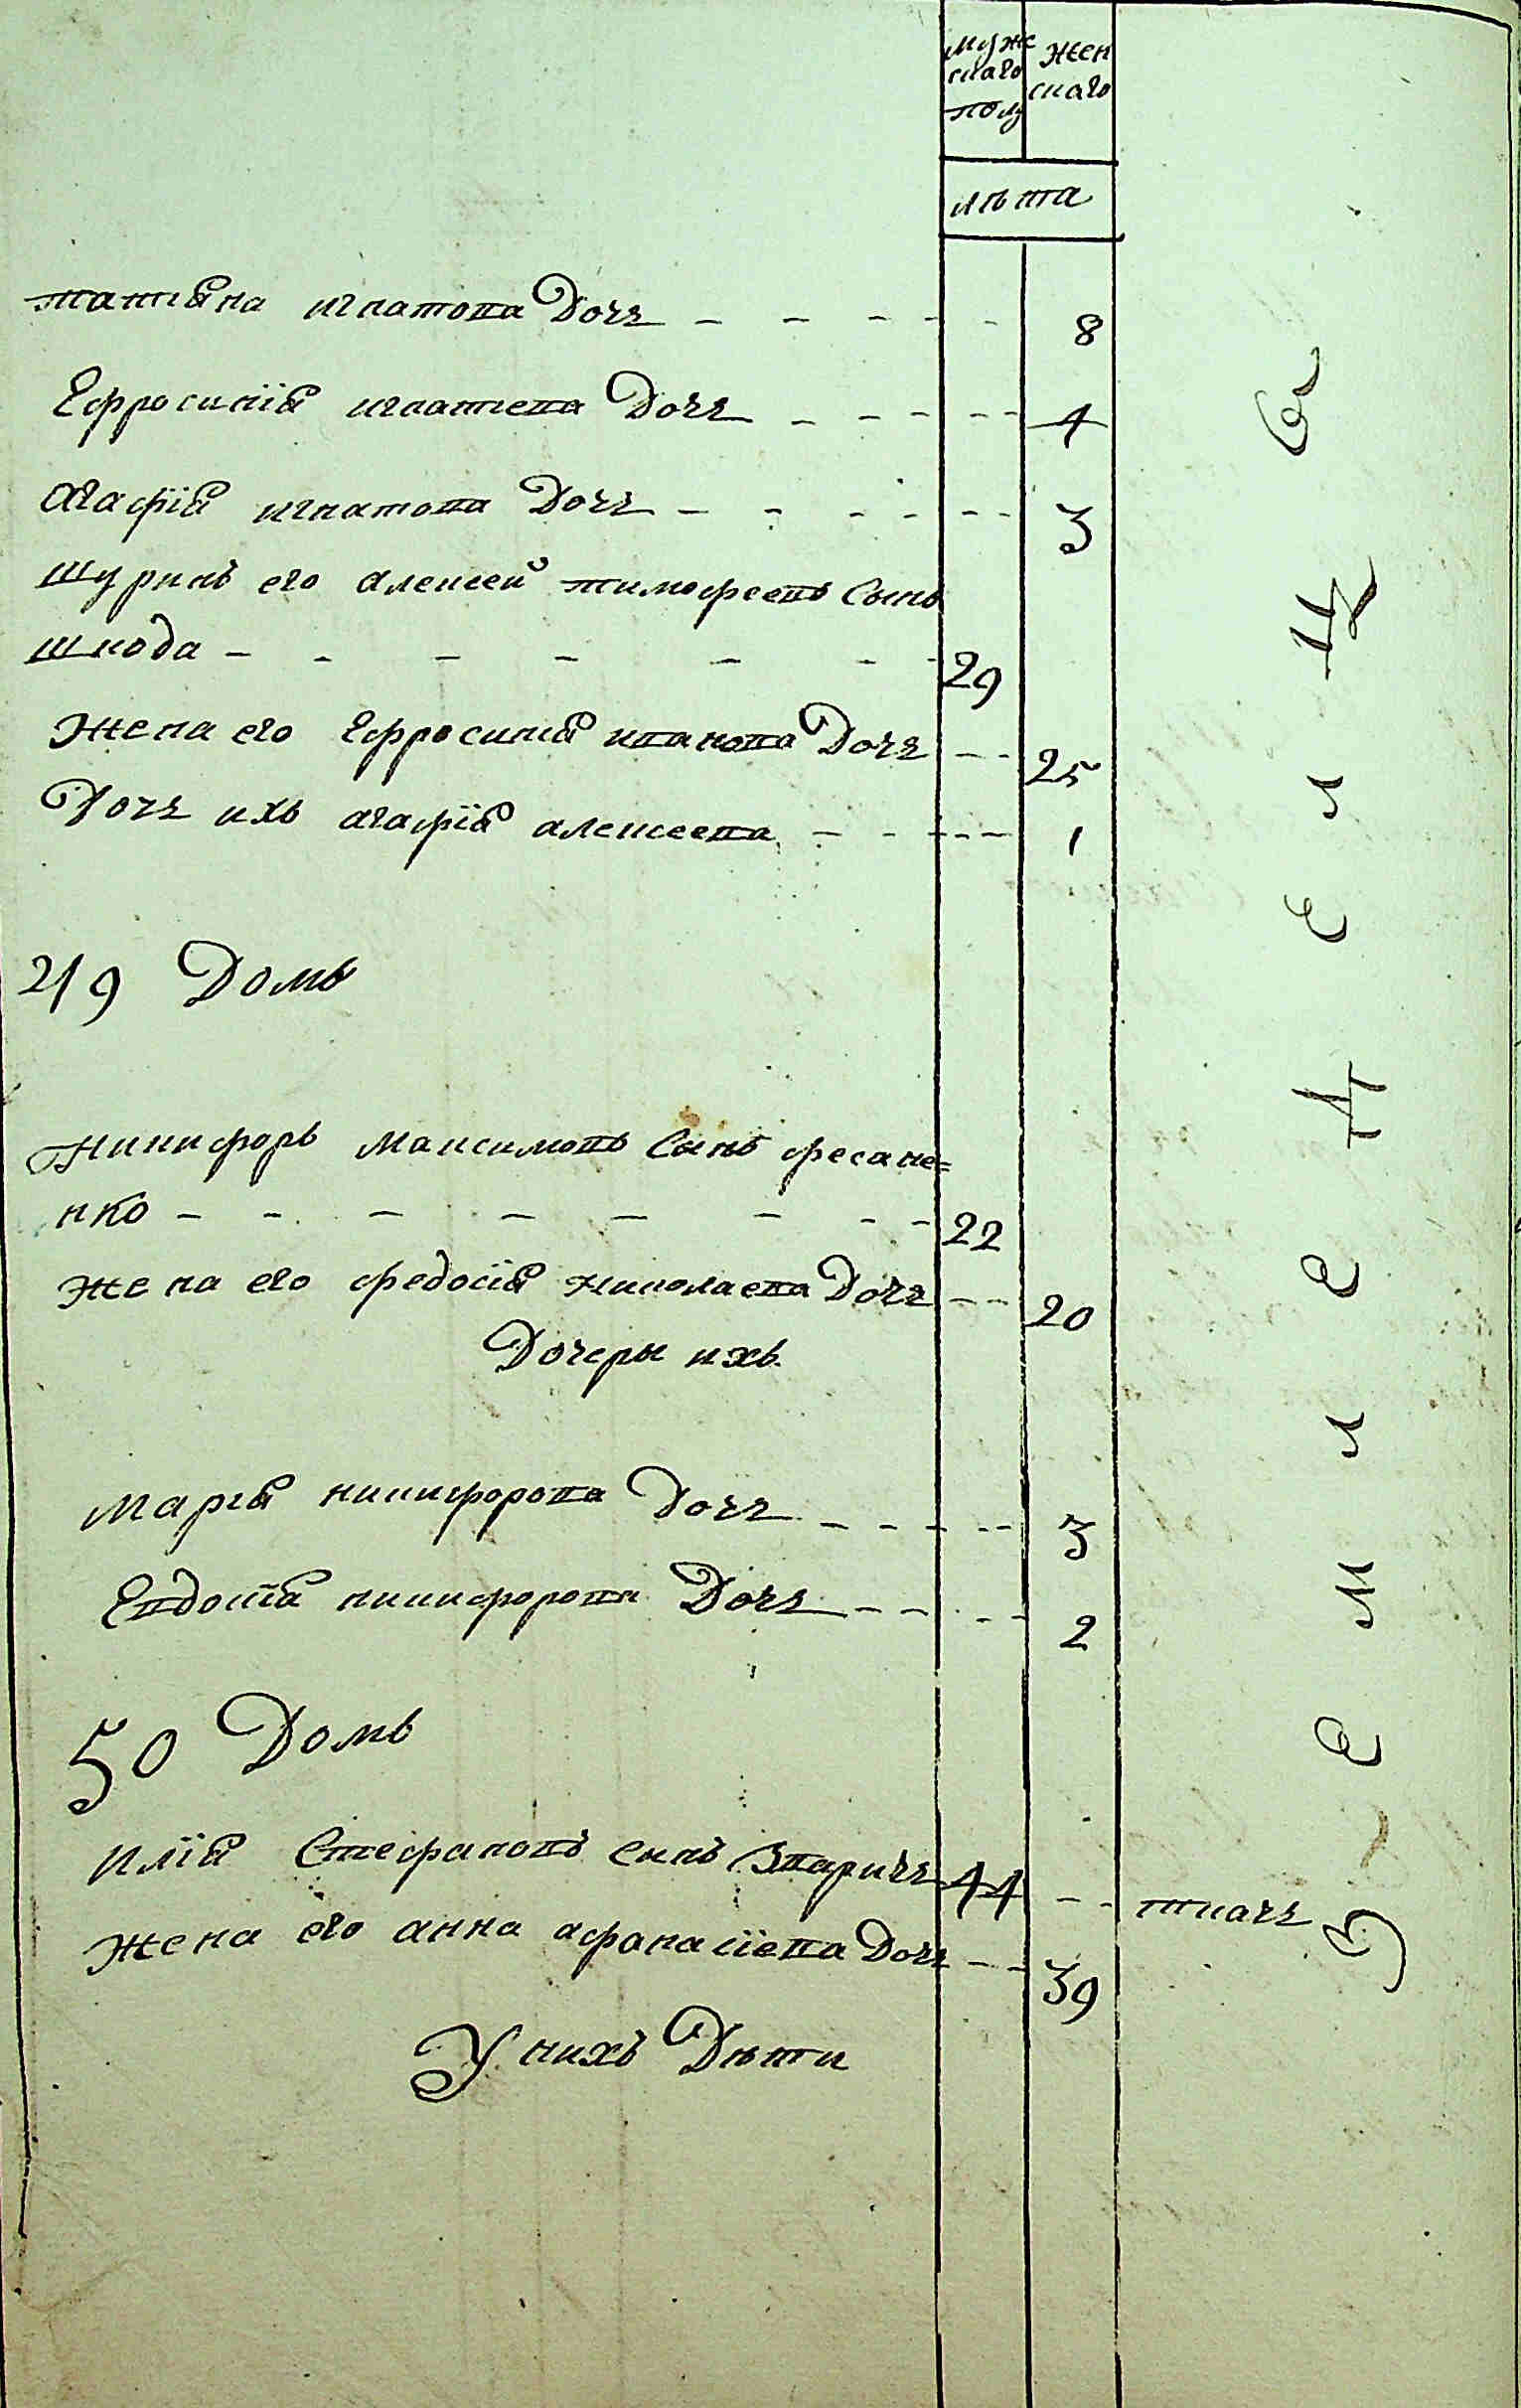 мужскаго полу
женскаго
лѣта
татіяна игнатова дочь - - - - - 8
Ефросиніія игнатиева дочь - - - - - 4
Агафія игнатова дочь - - - - - - 3
шуринъ его алексей тимофеевъ сынъ
шкода - - - - - - 29
жена его Ефросиния иванова дочь - - 25
дочь ихъ агафія алексеева - - - - - 1
49 домъ
никифоръ максимовъ сынъ фесане=
нко - - - - - - - - 22
жена его федосія николаева дочь - - 20
дочеры ихъ
Мария никифорова дочь - - - - - 3
Евдокія никифорова дочь - - - - 2
50 домъ
Илія Стефановъ сынъ Зваричь 44 - - ткачь
жена его анна афанасіева дочь - - 39
У нихъ дѣти
Земледелецъ